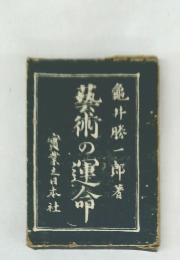 龜井勝一郎著
藝術の運命
實業之日本社